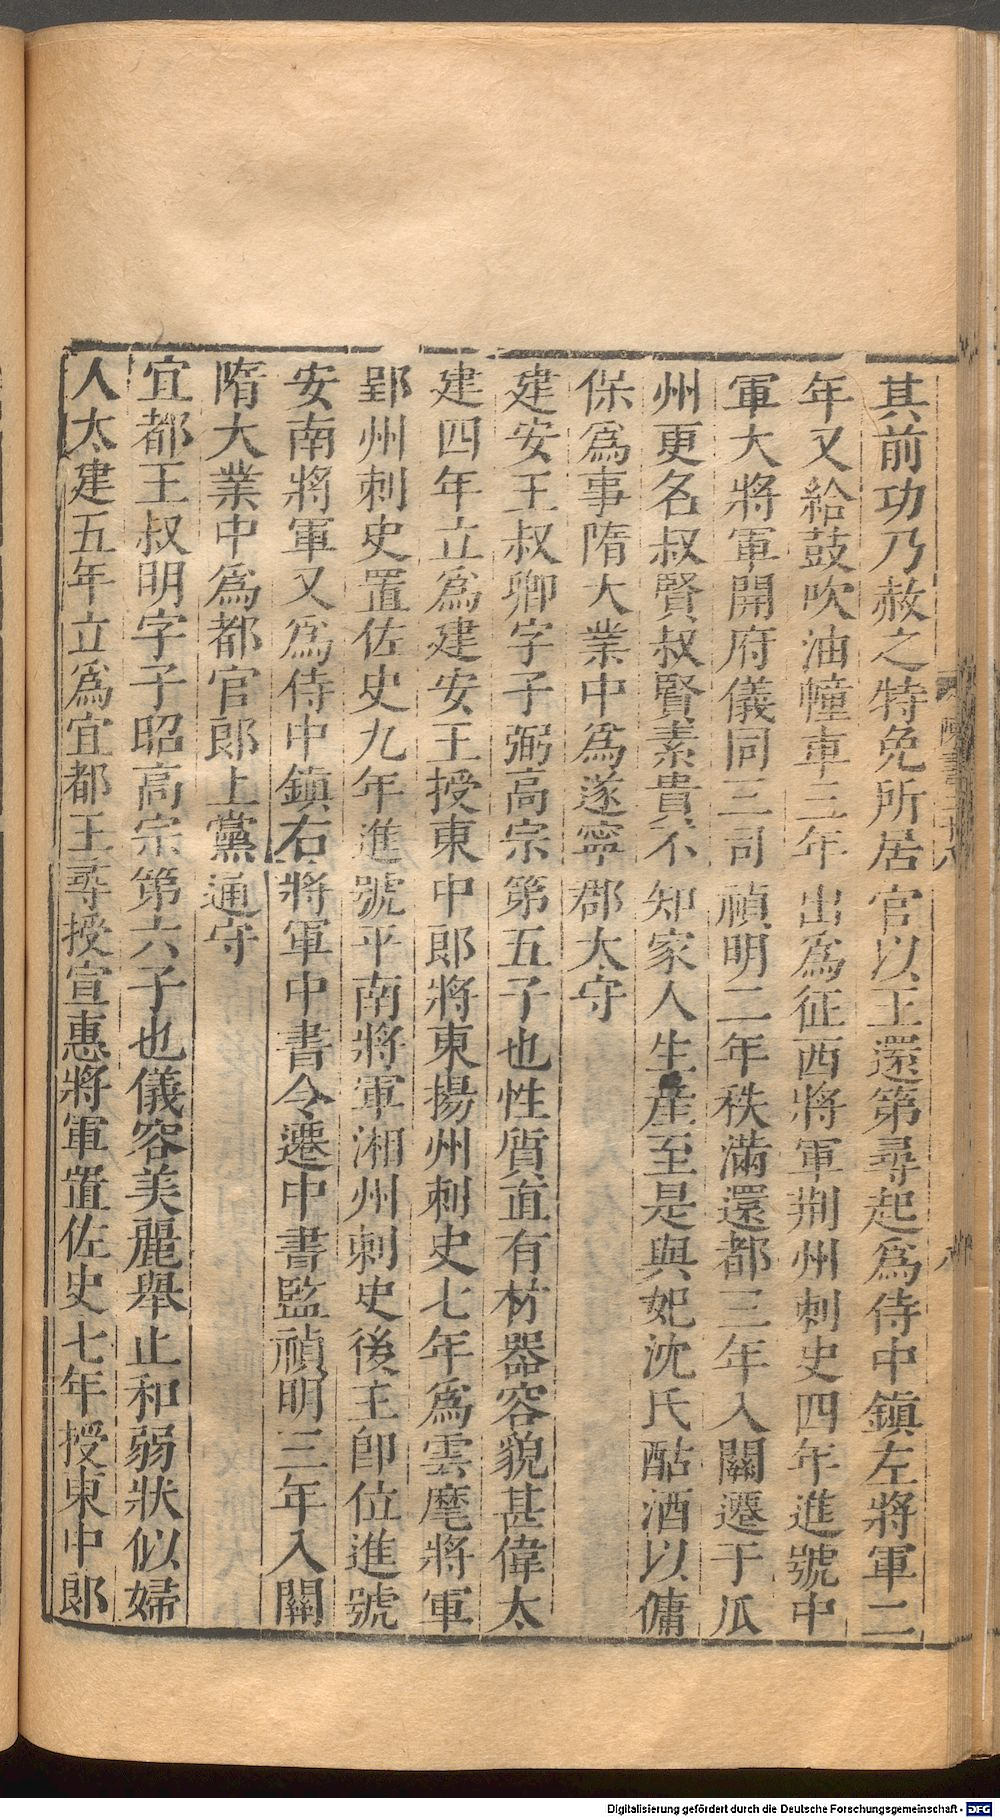 其前功乃赦之特免所居官以王還第尋起爲侍中鎮左將軍二
年又給鼓吹油幢車三年出爲征西將軍荆州刺史四年進號中
軍大將軍開府儀同三司禎明二年秩滿還都三年入關遷于瓜
州更名叔賢叔賢素貴不知家人生産至是與妃沈氏酤酒以傭
保爲事隋大業中爲遂寧郡太守
建安王叔卿字子弼高宗第五子也性質直有材器容貌甚偉太
建四年立爲建安王授東中郎將東揚州刺史七年爲雲麾將軍
郢州刺史置佐史九年進號平南將軍湘州刺史後主卽位進號
安南將軍又爲侍中鎮右將軍中書令遷中書監禎明三年入關
隋大業中爲都官郎上黨通守
宜都王叔明字子昭高宗第六子也儀容美麗舉止和弱狀似婦
人太建五年立爲宜都王尋授宣惠將軍置佐史七年授東中郎
Digitalisierung gefördert durch die Deutsche Forschungsgemeinschaft - DFG